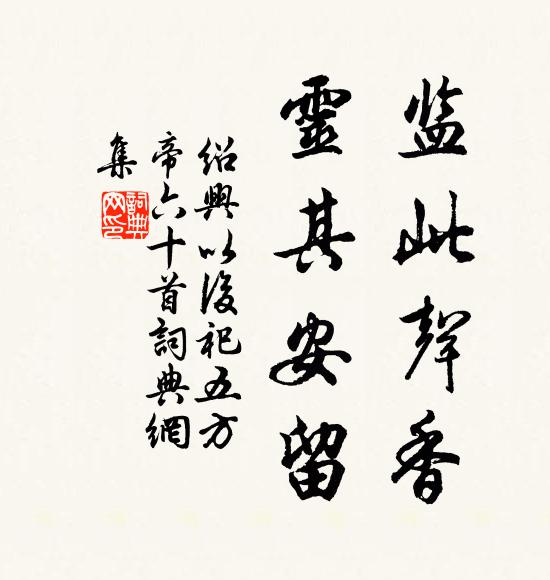 监此聲香
靈其安留
绍興以後祀五方
帝六十首詞典網
集
詞典
网印